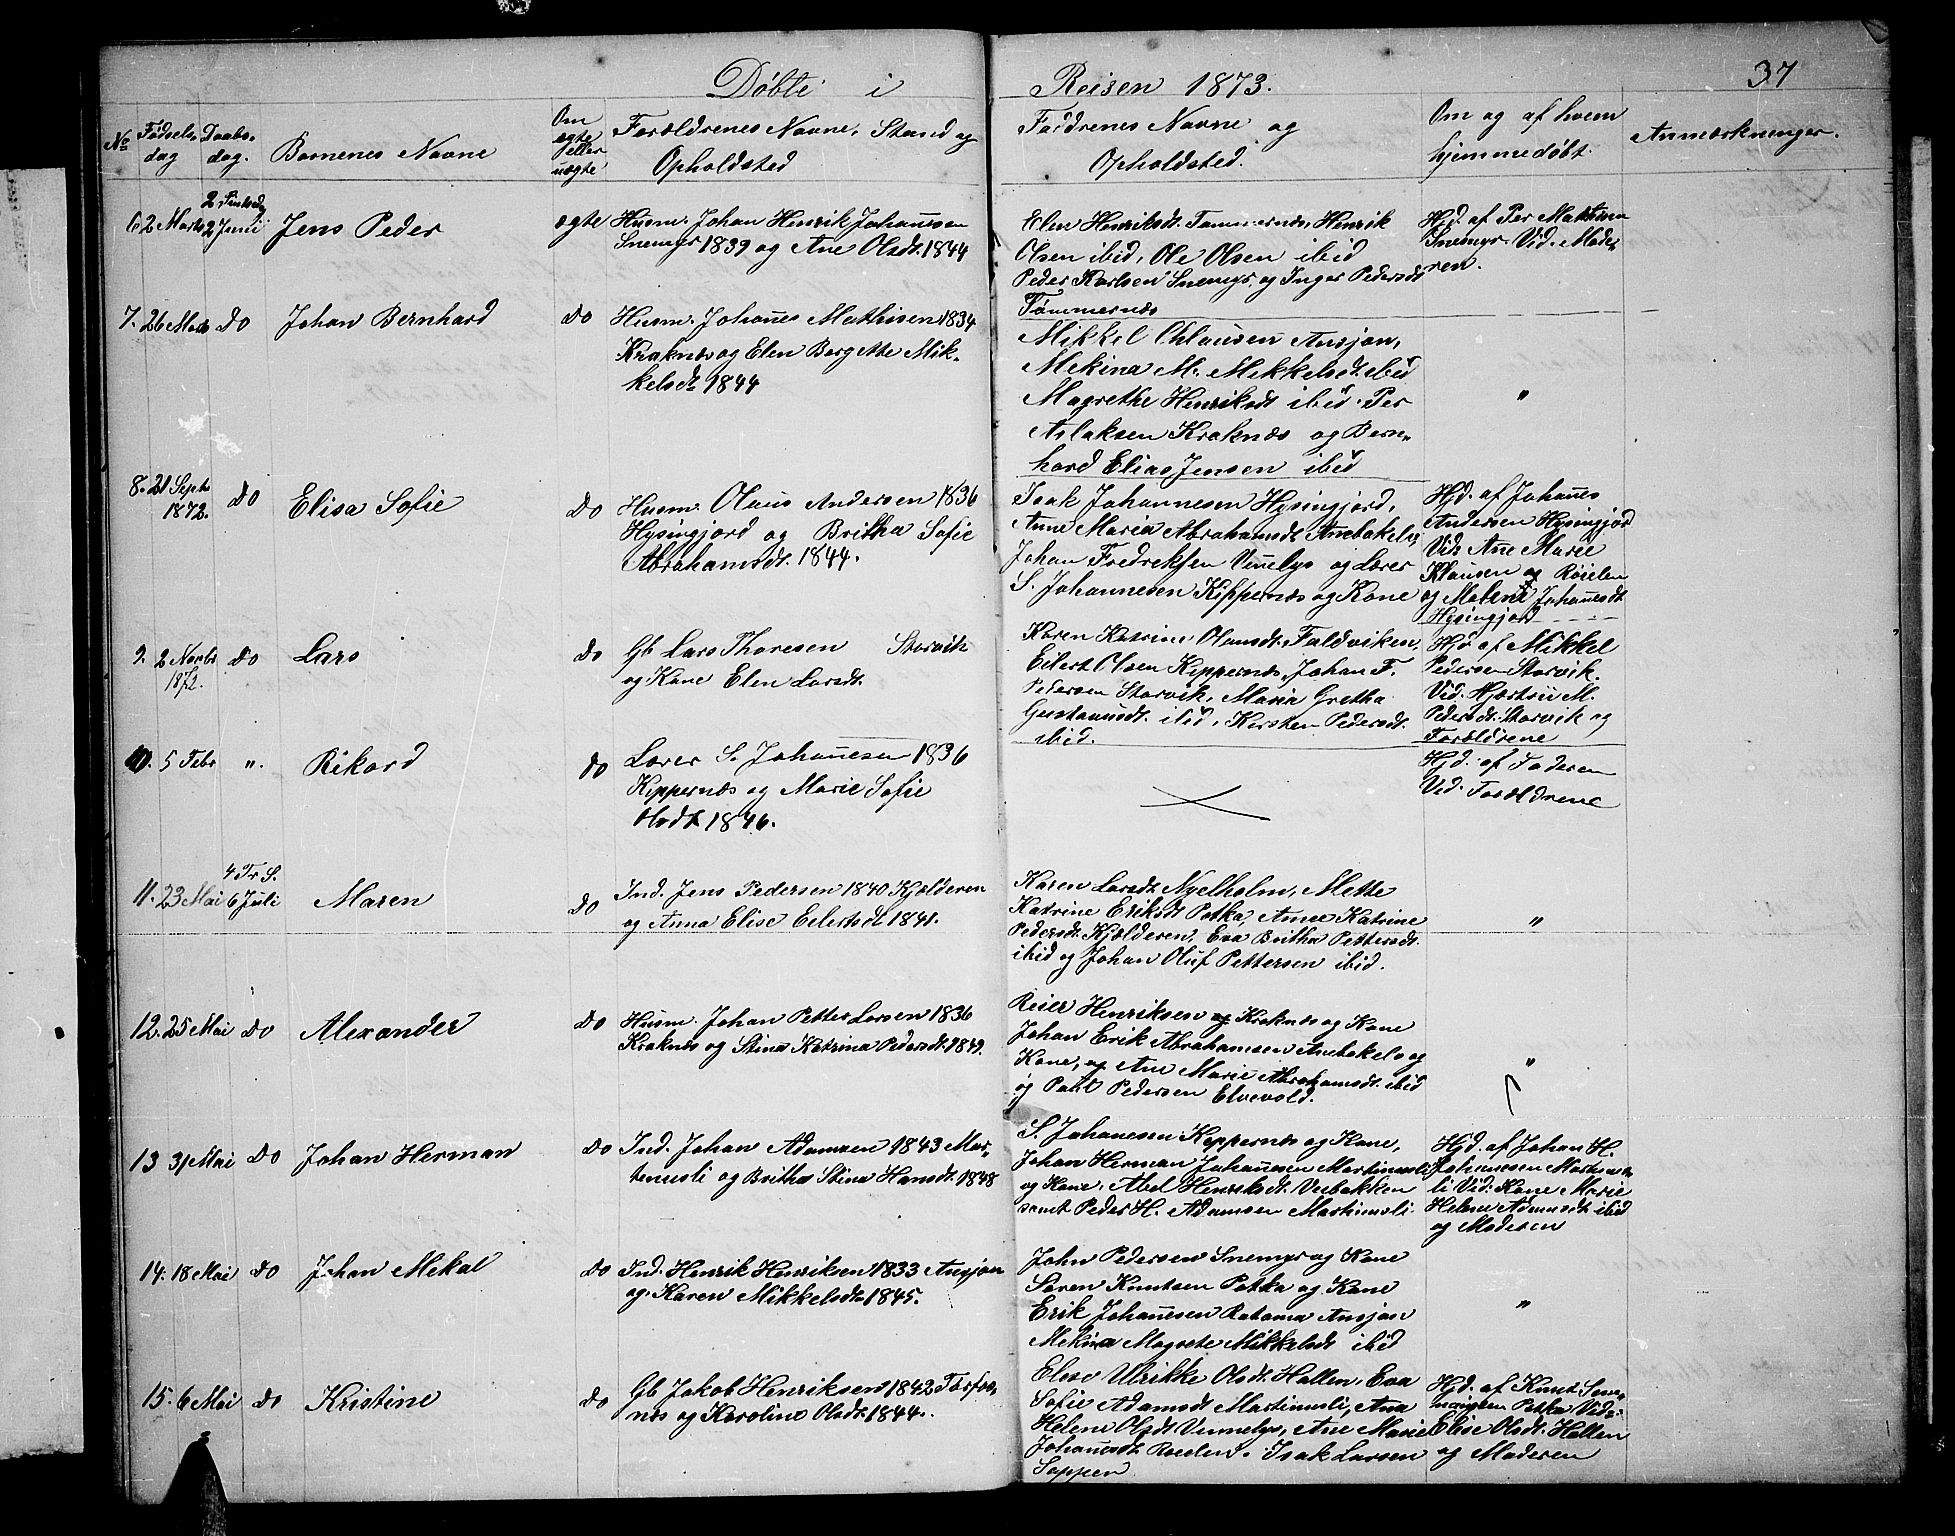 Døbte i Reisen 1873. 37
No Fødsels- Daabs- Børnenes Navne Om ægte eller uægte Forældrenes Navne, Stand og Faddrenes Navne og Om og af hvem Anmærkninger.
dag dag. Opholdsted Opholdsted. hjemmedøbt.
6 2 Marts 2 Juni Jens Peder ægte Husm. Johan Henrik Johannesen
Snemyr 1839 og Ane Olsdt. 1844
Elen Henriksdt. Tømmernæs, Henrik
Olsen ibid, Ole Olsen ibid
Peder Karlsen Snemyr og Inger Pedersdt
Tømmernæs
Hjd. af Per
Snemyr. Vid. Mode-
ren.
7. 26 Marts Do Johan Bernhard Do Husm. Johanes Mathisen 1834
Kraknæs og Elen Bergette Mik-
kelsdt 1844
Mikkel Chlausen Ansjon,
Mekina M. Mikkelsdt. ibid
Magrethe Henriksdt ibid. Per
Aslaksen Kraknæs og Bern-
hard Elias Jensen ibid
"
8. 21 Septb 1872. Do Elisa Sofie Do Husm. Olaus Andersen 1836
Hysingjord og Britha Sofie
Abrahamsdt. 1844.
Isak Johannesen Hysingjord,
Anne Maria Abrahamsdt
Johan Fredreksen Vinnelys og Lærer
S. Johannesen Kippernæs og Kone
Hjd. af Johanes
Andersen Hysingjord
Vid. Ane Marie
Klausen og Røielen
og Malene Johanesdt
Hysingjord
9. 2 Novbr 1872. Do Lars Do Gb Lars Thoresen Storvik
og Kone Elen Larsdt.
Karen Katrine Olausdt. Faldviken,
Eilert Olsen Kippernæs, Johan F.
Pedersen Storvik, Maria Gretha
Gustavusdt. ibid. Kirsten Pedersdt.
ibid.
Hjd af Mikkel
Pedersen Storvik.
Vid. M.
Pedersdt. Storvik og
Forældrene
10. 5 Febr " Rikard Do Lærer S. Johannesen 1836
Kippernæs og Marie Sofie
Olsdt 1846.
Hjd. af Faderen
Vid. Forældrene
11. 23 Mai 4 Tr. S. 6 Juli Maren Do Ind. Jens Pedersen 1840 Kjelderen
og Anna Elise Eilertsdt 1841.
Karen Larsdt. Nyelholm, Mette
Katrine Eriksdt Potka, Anne Katrine
Pedersdt. Kjælderen, Eva Britha Pettersdt.
ibid og Johan Oluf Pettersen ibid.
"
12. 25 Mai Do Alexander Do Husm. Johan Petter Larsen 1836
Kraknæs og Stina Katrina Pedersdt. 1849.
Reier Henriksen Kraknæs og Kone
Johan Erik Abrahamsen og
Kone, og Ane Marie Abrahamsdt. ibid
og Pahl Pedersen Elvevold.
"
13 31 Mai Do Johan Herman Do Ind. Johan Adamsen 1843 Mar-
tinusli og Britha Stina Hansdt. 1848
S. Johanesen Kippernæs og Kone,
Johan Herman Johannesen Martinusli
og Kone. Abel Henriksdt. Veibakken
samt Peder H. Adamsen Martinusli.
Hjd. af Johan H.
Johannesen Martinus-
li Vid. Kone Marie
Helene Adamsdt. ibid
og Moderen
14. 18 Mai Do Johan Mekal Do Ind. Henrik Henriksen 1833 Ansjon
og Karen Mikkelsdt. 1845.
John Pedersen Snemyr og Kone
Søren Knutsen Potka og Kone
Erik Johannesen Ratama Ansjon
Mekina Magrete Mikkelsdt ibid
"
15. 6 Mai Do Kristine Do Gb Jakob Henriksen 1842 Torfos-
næs og Karoline Olsdt. 1844.
Elise Ulrikke Olsdt. Hallen, Eva
Sofie Adamsdt Martinusli, Ana
Helene Olsdt Vinnelys, Ane Marie
Johannsdt. Røielen. Isak Larsen
Sappen
Hjd. af Knut
Potka Vid.
Elise Olsdt. Hallen
og Moderen